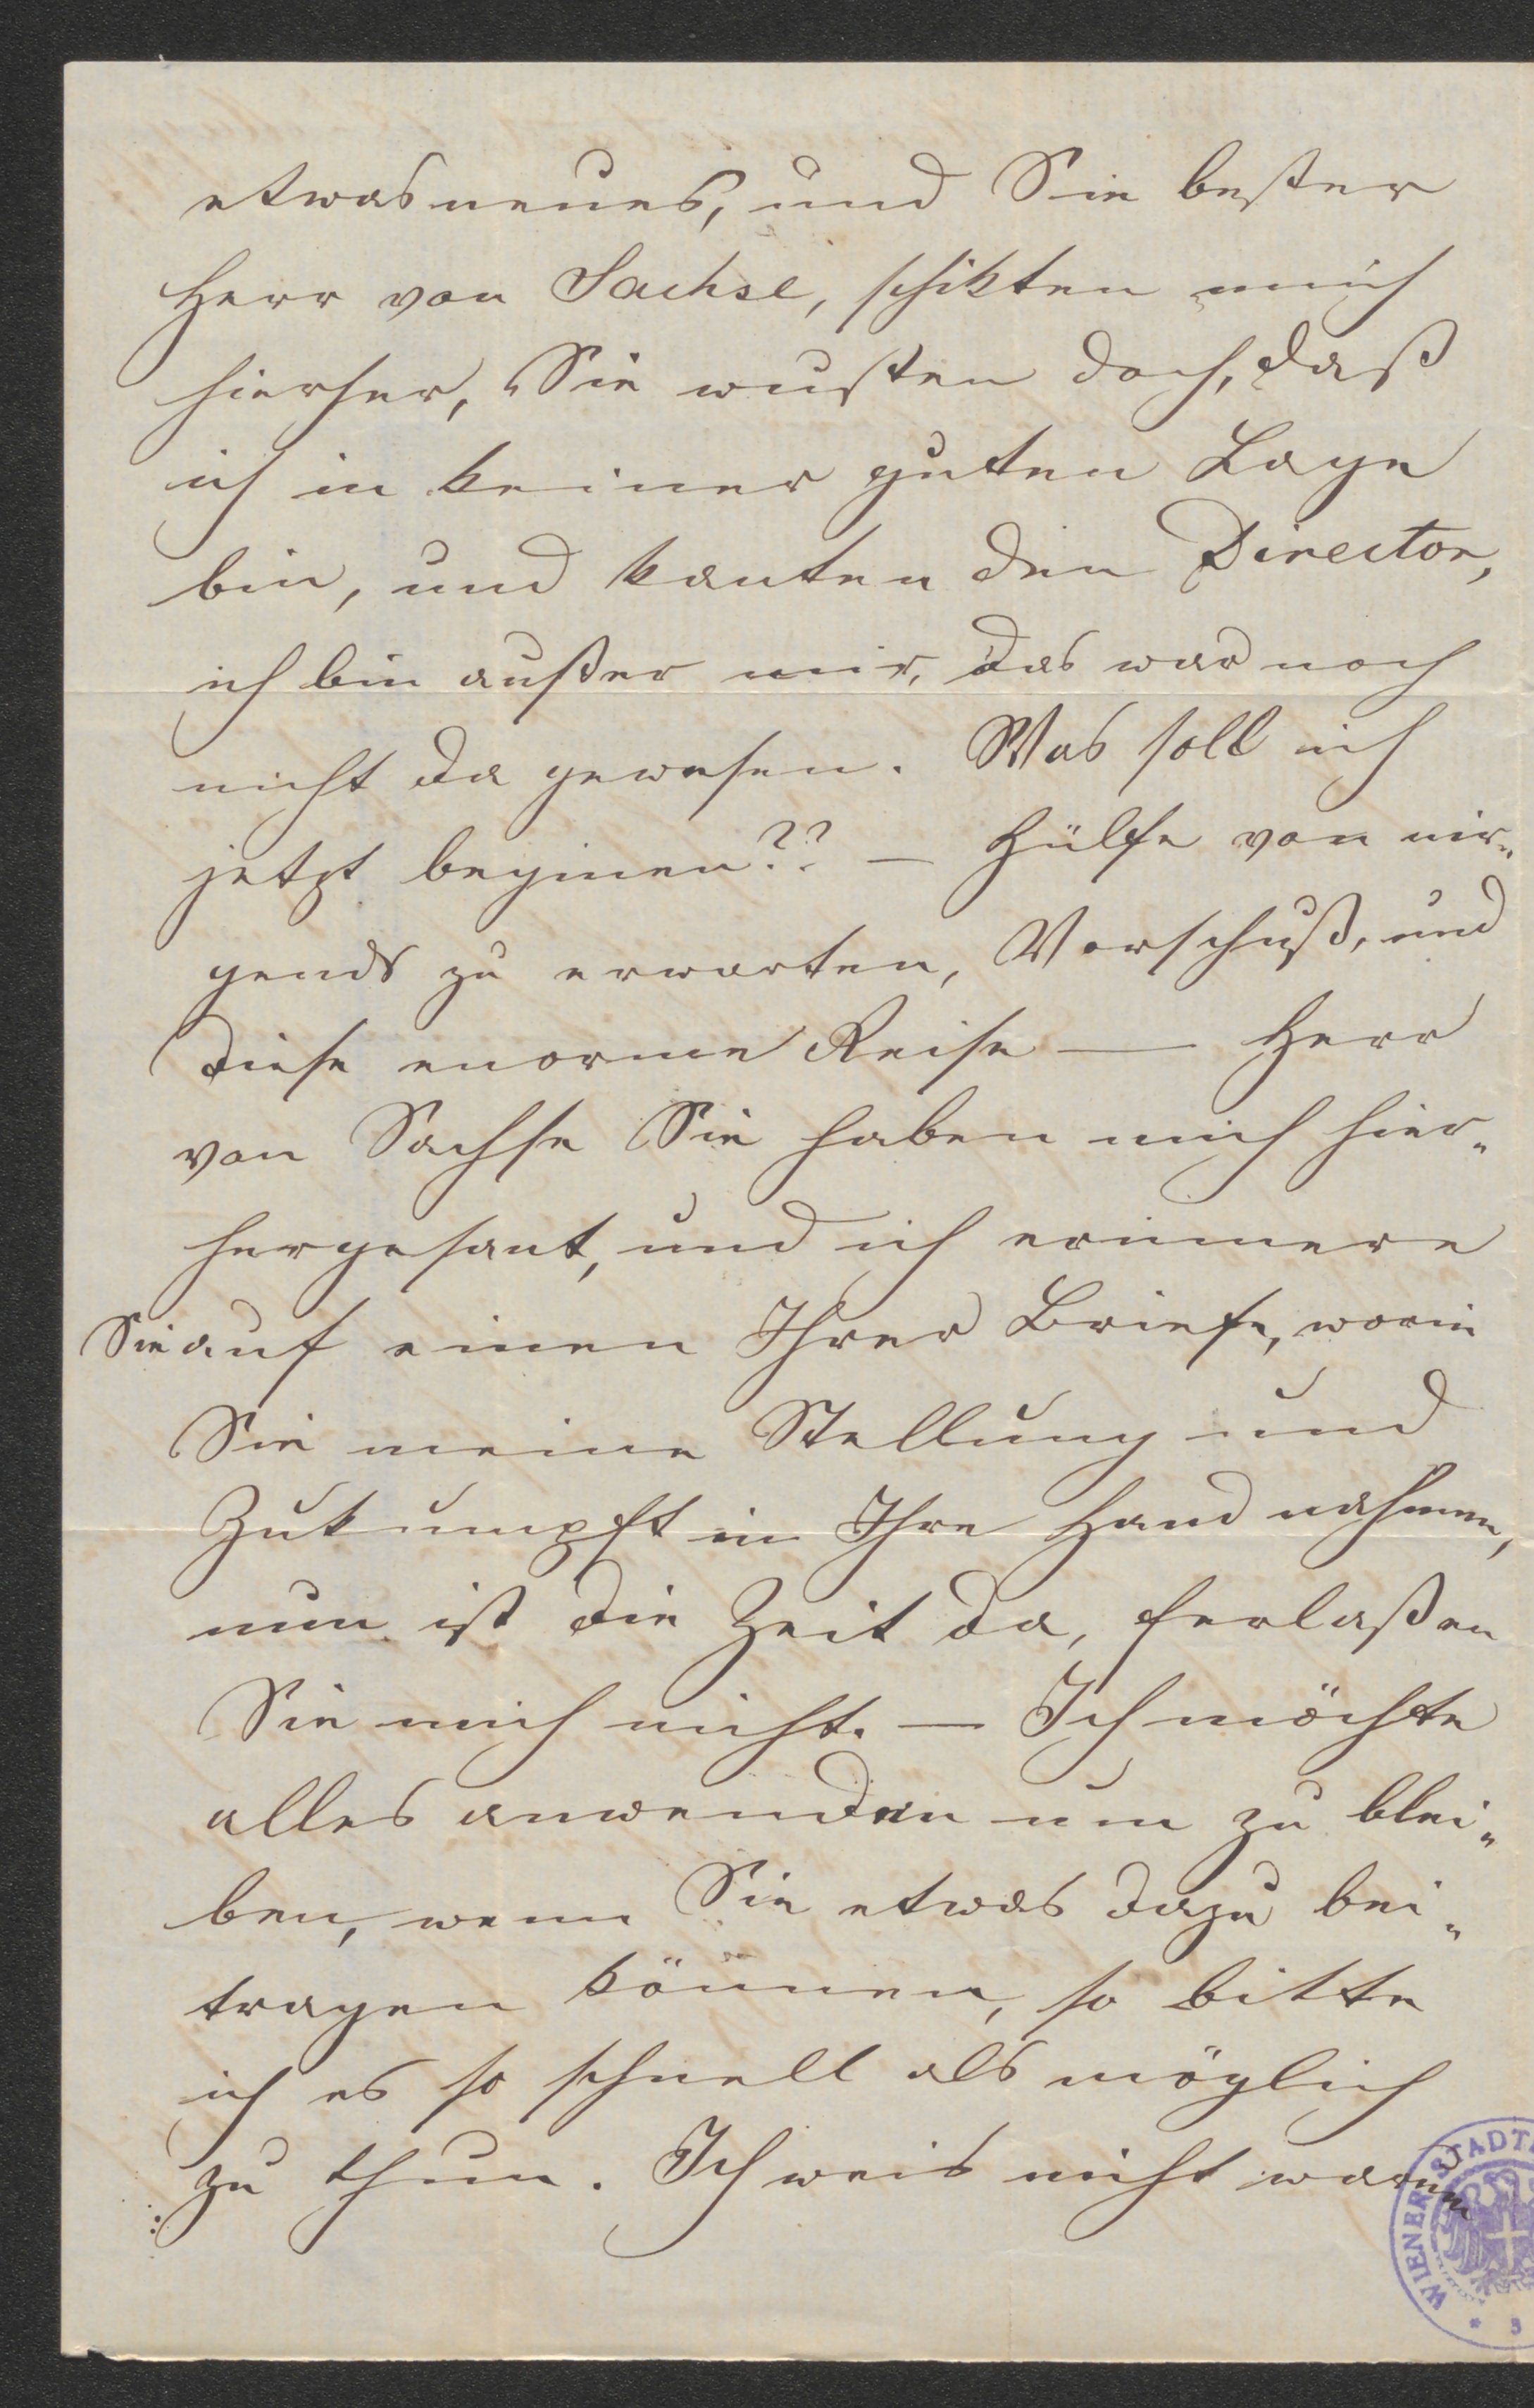 etwas neues, und Sie bester
Herr von Sachse, schikten mich
hierher, Sie wusten doch, daß
ich in keiner guten Lage
bin, und kanten den Director,
ich bin außer mir, das war noch
nicht da gewesen. Was soll ich
jetzt beginen?? — Hülfe von nir„
gends zu erwarten, Vorschuß, und
diese enorme Reise — Herr
von Sachse Sie haben mich hier„
hergesant, und ich erinnere
Sie auf einen Ihrer Briefe, worin
Sie meine Stellung und
Zukumpft in Ihre Hand nahmen,
nun ist die Zeit da, ferlaßen
Sie mich nicht. — Ich möchte
alles anwenden um zu blei„
ben, wenn Sie etwas dazu bei„
tragen können, so bitte
ich es so schnell als möglich
zu thun. Ich weis nicht warum
WIENER STADT